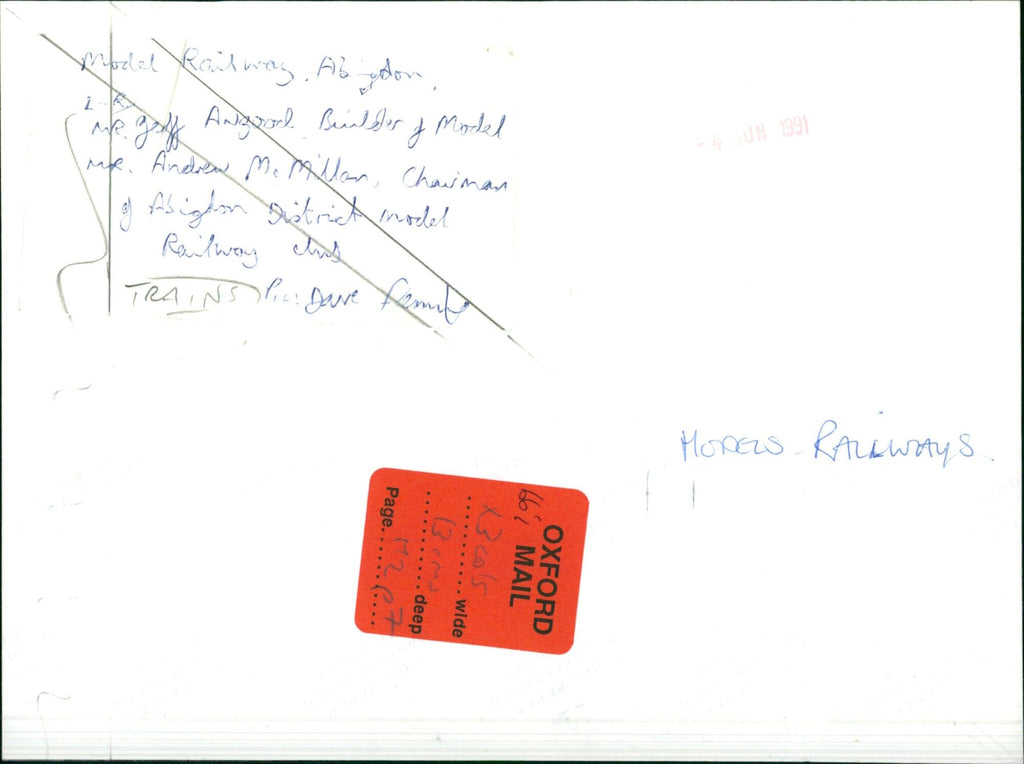 Model Railway, Abigdon,
L-R
MR. Geoff Builder of Model
MR. Andrew McMillan, Chairman
of Abigdon District Model
Railway club
TRAINS Pic: Dave
1991
MODELS RAILWAYS
OXFORD
MAIL
x3 cols wide
13 cms deep
Page M2 p7